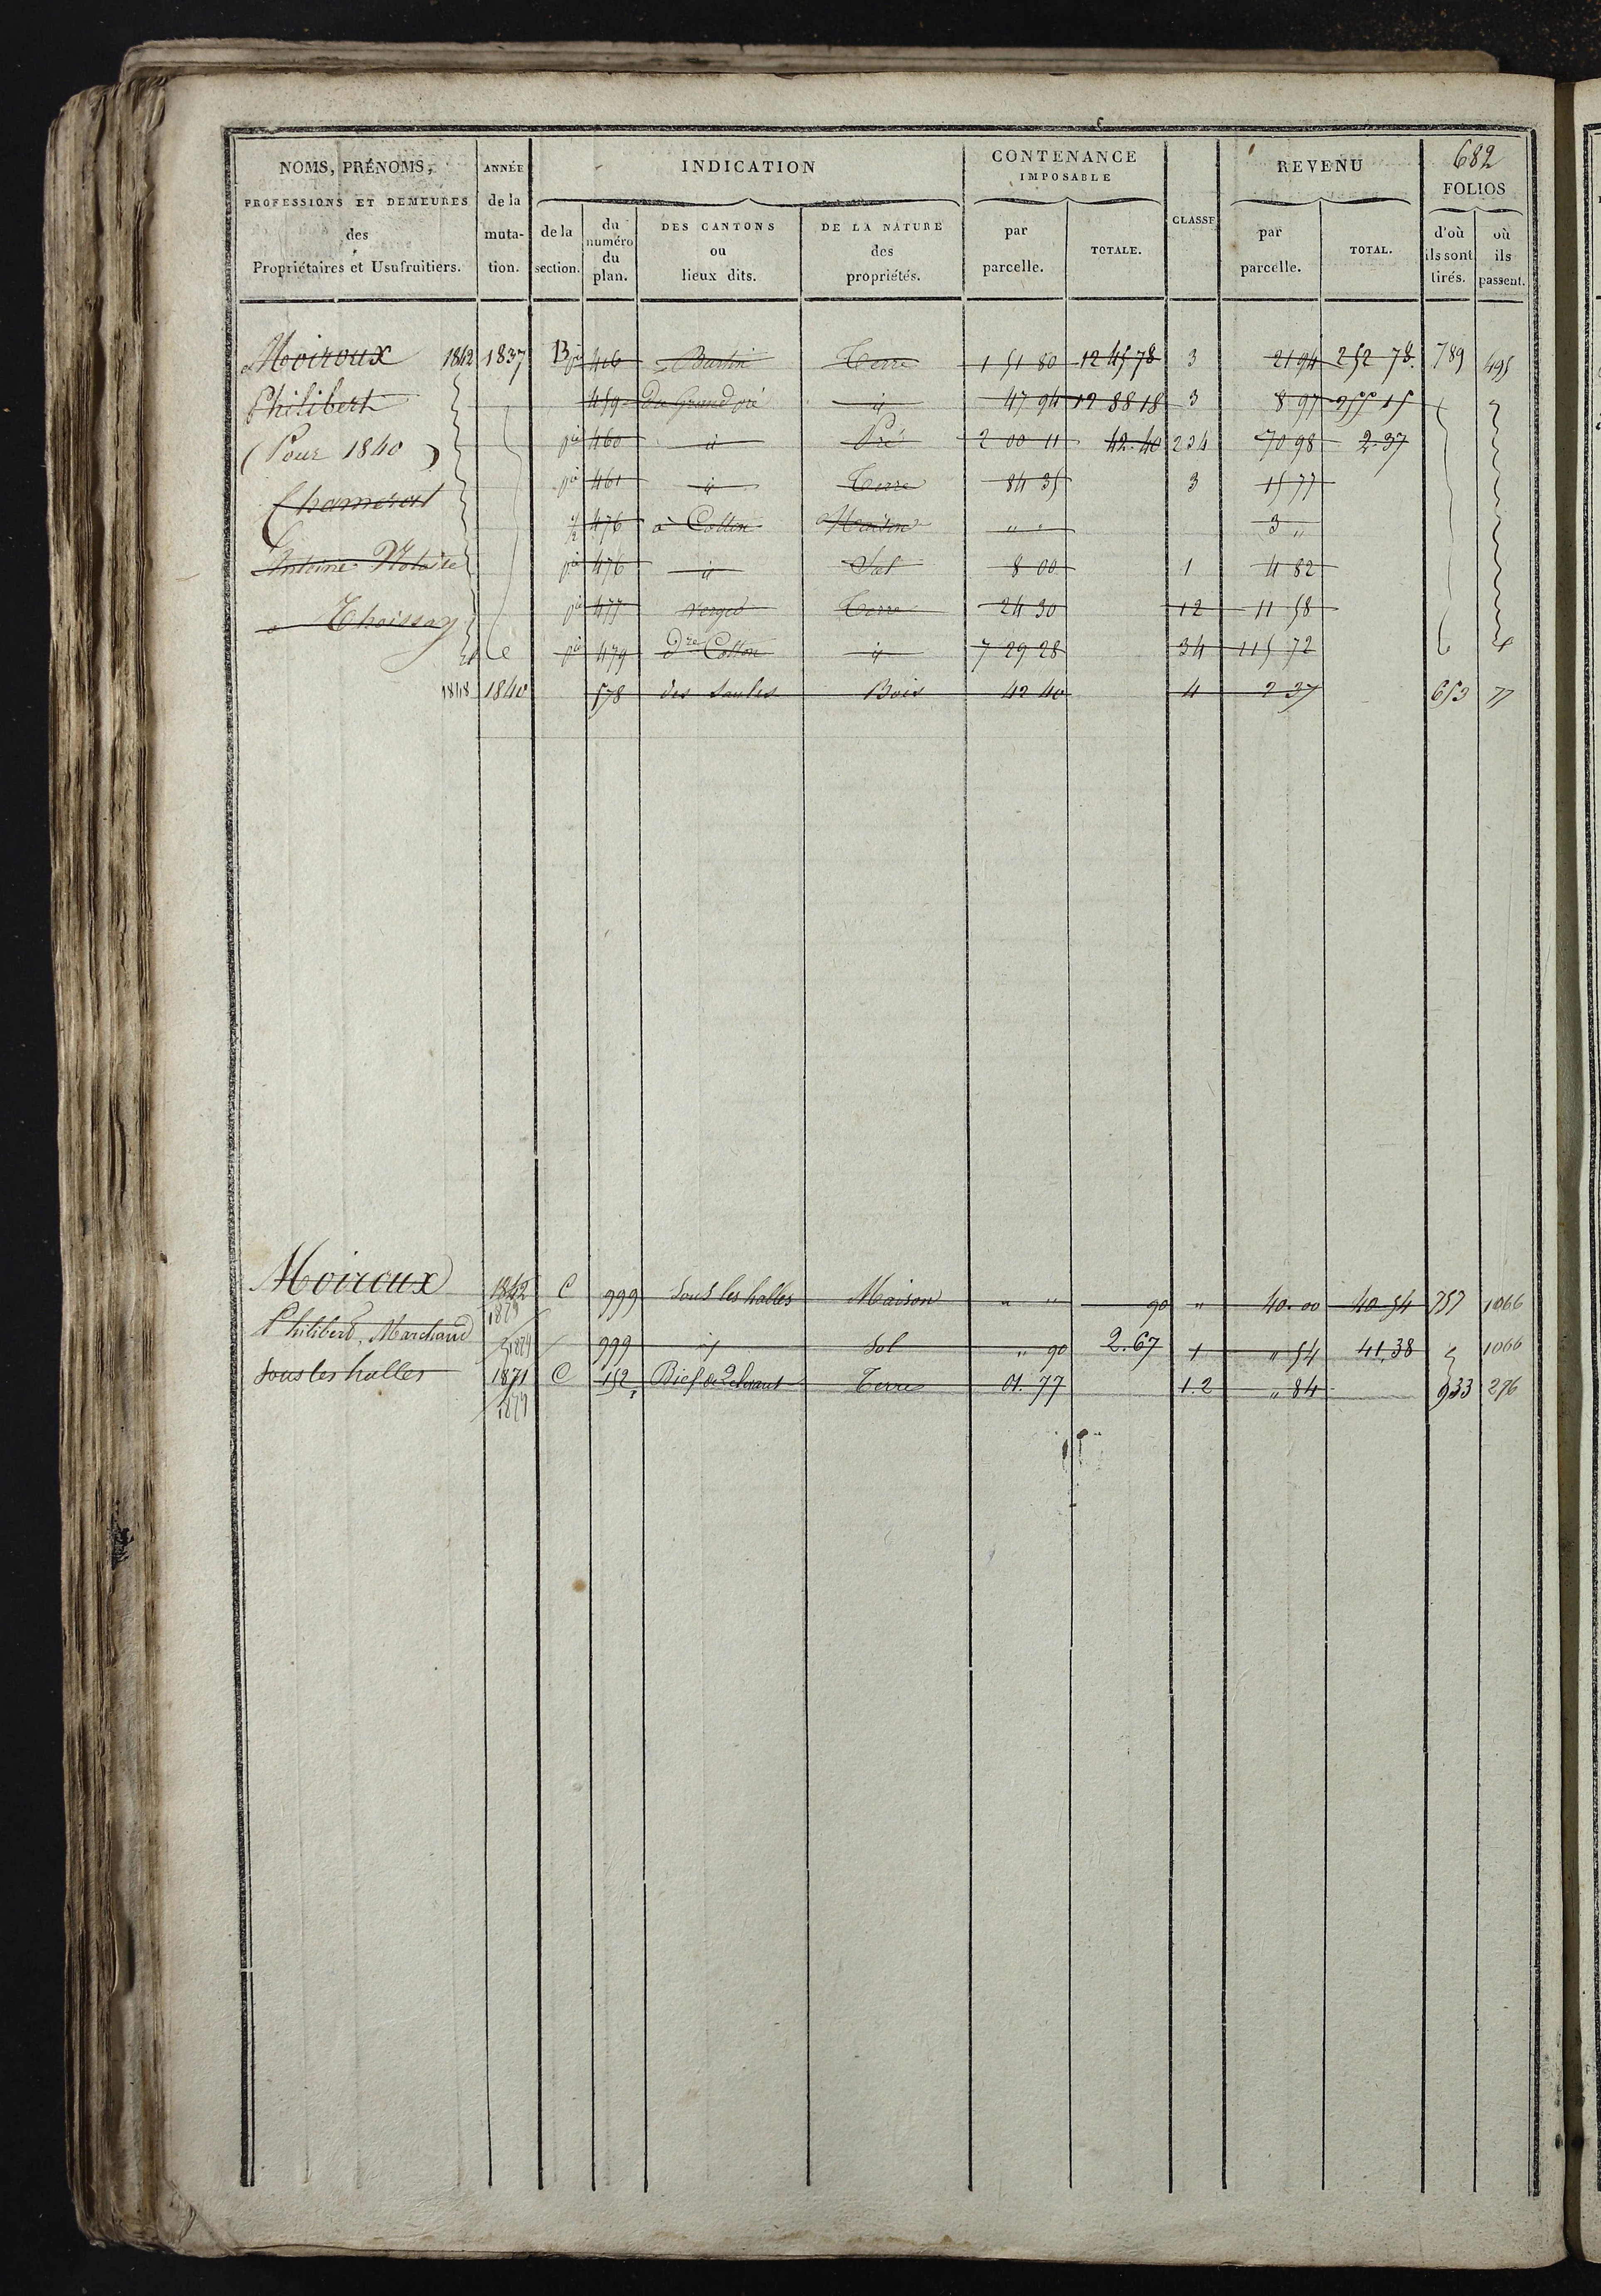 682
NOMS, PRÉNOMS, PROFESSIONS ET DEMEURES des Propriétaires et Usufruitiers.
ANNÉE de la muta- tion.
INDICATION
de la section.
du numéro du plan.
DES CANTONS ou lieux dits.
DE LA NATURE des propriétés.
CONTENANCE IMPOSABLE
par parcelle.
TOTALE.
CLASSE
REVENU
par parcelle.
TOTAL.
FOLIOS
d'où ils sont tirés.
où ils passent.
Moiroux 1842 1837 B pie 416 Terre 1 51 80 12 45 78 3 21 94 252 78 789 495
Philibert 459 du Grand pré id 47 94 12 88 18 3 8 97 255 15
(Pour 1840) pie 460 id Pré 2 00 11 42.40 234 70 98 2.37
Chamerat pie 461 id Terre 84 35 3 15 77
½ 476 à Collon Maison " " 3 "
Antoine Notaire pie 476 id Sol 8 00 1 4 82
pie 477 verger Terre 24 30 12 11 58
à Thoissey pie 479 Collon id 7 29 28 34 115 72
1848 1840 578 des Saules Bois 42 40 4 2 37 653 77
Moiroux 1842 C 999 Sous les halles Maison " " 90 " 40.00 40 54 757 1066
Philibert, Marchand 999 id Sol " 90 2.67 1 " 54 41,38 1066
Sous les halles 1871 C 152 Bief Terre 01.77 1.2 " 84 933 276